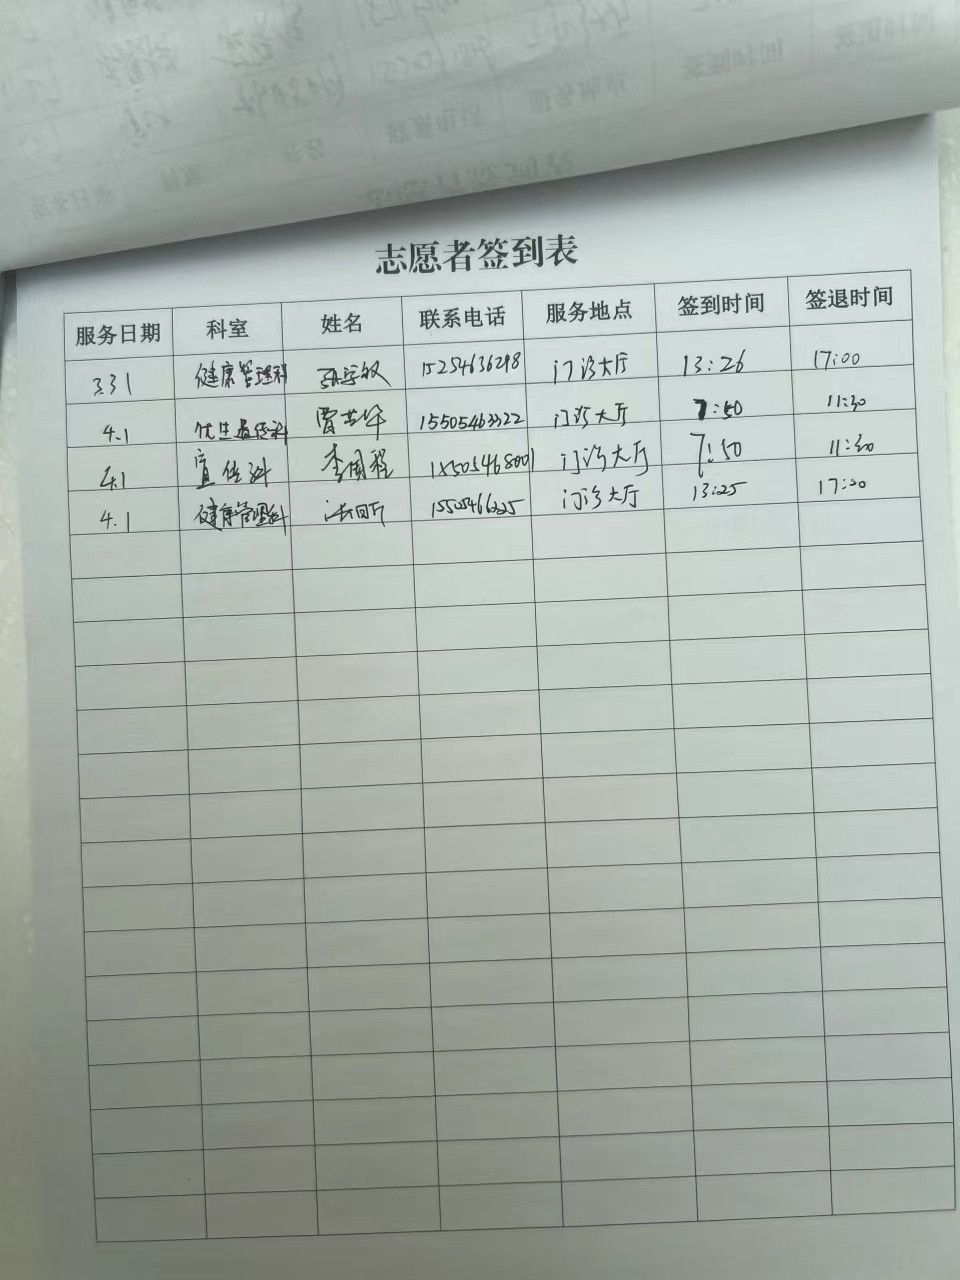 志愿者签到表
服务日期 科室 姓名 联系电话 服务地点 签到时间 签退时间
3.31 健康管理科 15254636298 门诊大厅 13:26 17:00
4.1 优生遗传科 贾芸华 15505463322 门诊大厅 7:50 11:30
4.1 宣传科 李国程 18505468001 门诊大厅 7:50 11:30
4.1 健康管理科 门诊大厅 13:25 17:00